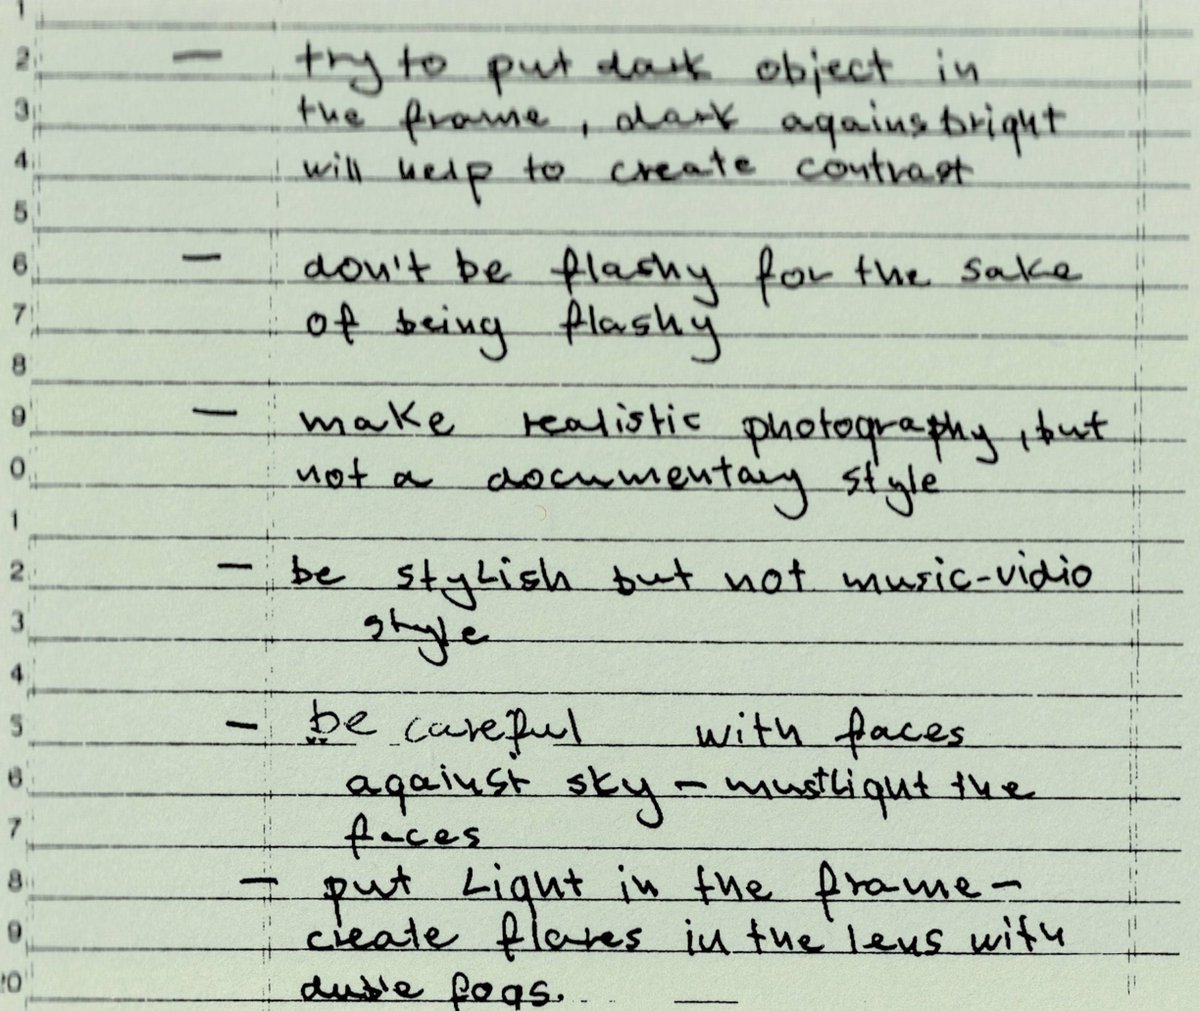 1
2 — try to put dark object in
3 the frame, dark agains bright
4 will help to create contrast
5
6 — don't be flashy for the sake
7 of being flashy
8
9 — make realistic photography, but
0 not a documentary style
1
2 — be stylish but not music-vidio
3 style
4
5 — be careful with faces
6 against sky — must light the
7 faces
8 — put Light in the frame —
9 create flares in the lens with
20 fogs.